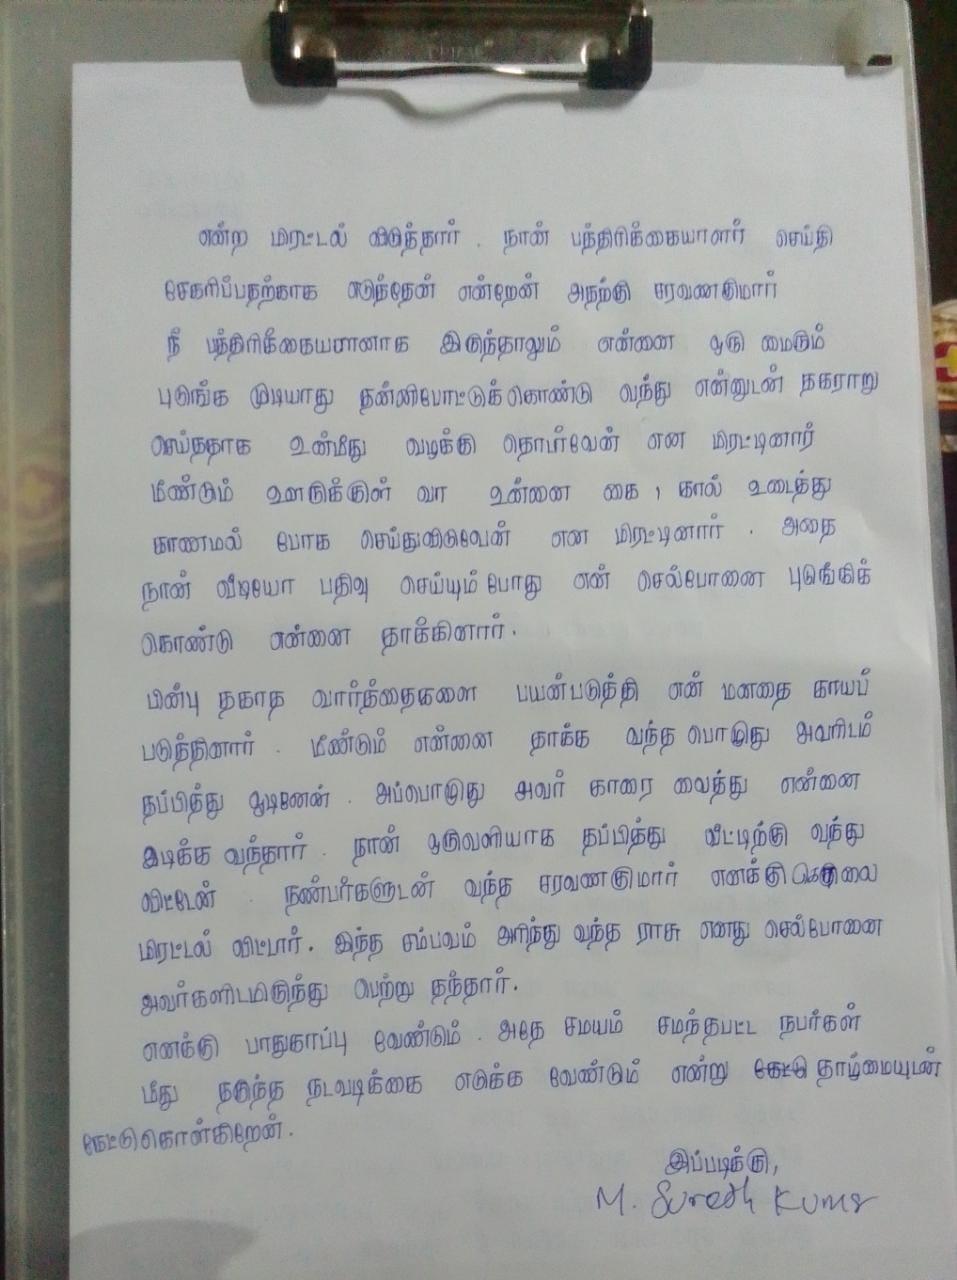 என்ற மிரட்டல் விடுத்தார். நான் பத்திரிக்கையாளர் செய்தி
சேகரிப்பதற்காக எடுத்தேன் என்றேன் அதற்கு சரவணகுமார்
நீ பத்திரிக்கையாளனாக இருந்தாலும் என்னை ஒரு மைரும்
புடுங்க முடியாது தன்னிபோட்டுக் கொண்டு வந்து என்னுடன் தகராறு
செய்ததாக உன்மீது வழக்கு தொடர்வேன் என மிரட்டினார்
மீண்டும் ஊருக்குள் வா உன்னை கை, கால் உடைத்து
காணமல் போக செய்துவிடுவேன் என மிரட்டினார். அதை
நான் வீடியோ பதிவு செய்யும் போது என் செல்போனை புடுங்கிக்
கொண்டு என்னை தாக்கினார்.
பின்பு தகாத வார்த்தைகளை பயன்படுத்தி என் மனதை காயப்
படுத்தினார். மீண்டும் என்னை தாக்க வந்த பொழுது அவரிடம்
தப்பித்து ஓடினேன். அப்பொழுது அவர் காரை வைத்து என்னை
இடிக்க வந்தார். நான் ஒருவளியாக தப்பித்து வீட்டிற்கு வந்து
விட்டேன். நண்பர்களுடன் வந்த சரவணகுமார் எனக்கு கொலை
மிரட்டல் விட்டார். இந்த சம்பவம் அறிந்து வந்த ராசு எனது செல்போனை
அவர்களிடமிருந்து பெற்று தந்தார்.
எனக்கு பாதுகாப்பு வேண்டும். அதே சமயம் சமந்தபட்ட நபர்கள்
மீது தகுந்த நடவடிக்கை எடுக்க வேண்டும் என்று கேட்டு தாழ்மையுடன்
கேட்டுகொள்கிறேன்.
இப்படிக்கு,
M. Suresh Kumar